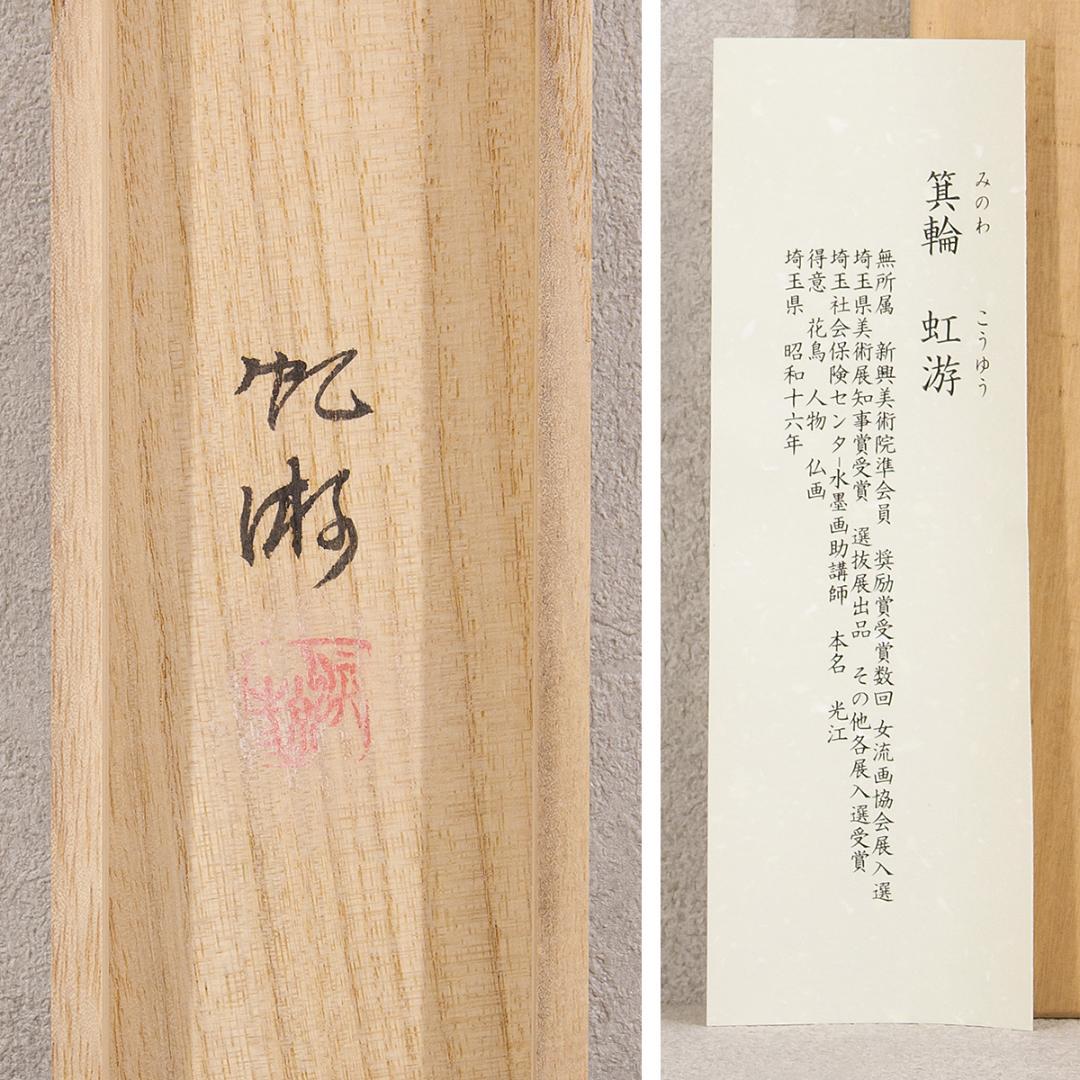 虹游
みのわ こうゆう
箕輪 虹游
無所属 新興美術院準会員 奨励賞受賞数回 女流画協会展入選
埼玉県美術展知事賞受賞 選抜展出品 その他各展入選受賞
埼玉社会保険センター水墨画助講師 本名 光江
得意 花鳥 人物 仏画
埼玉県 昭和十六年